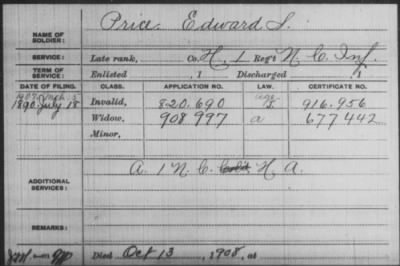 Price Edward
NAME OF SOLDIER:
SERVICE: Late rank, Co. H, 1 Reg't N.C. Inf.
TERM OF SERVICE: Enlisted , 1 Discharged , 1
DATE OF FILING. CLASS. APPLICATION NO. LAW. CERTIFICATE NO.
1890 July 18 Invalid, 820.690 916.956
Widow, 908997 a 677442
Minor,
ADDITIONAL SERVICES: A. 1 N.C. H. A.
REMARKS:
Died Oct 13, 1908, at